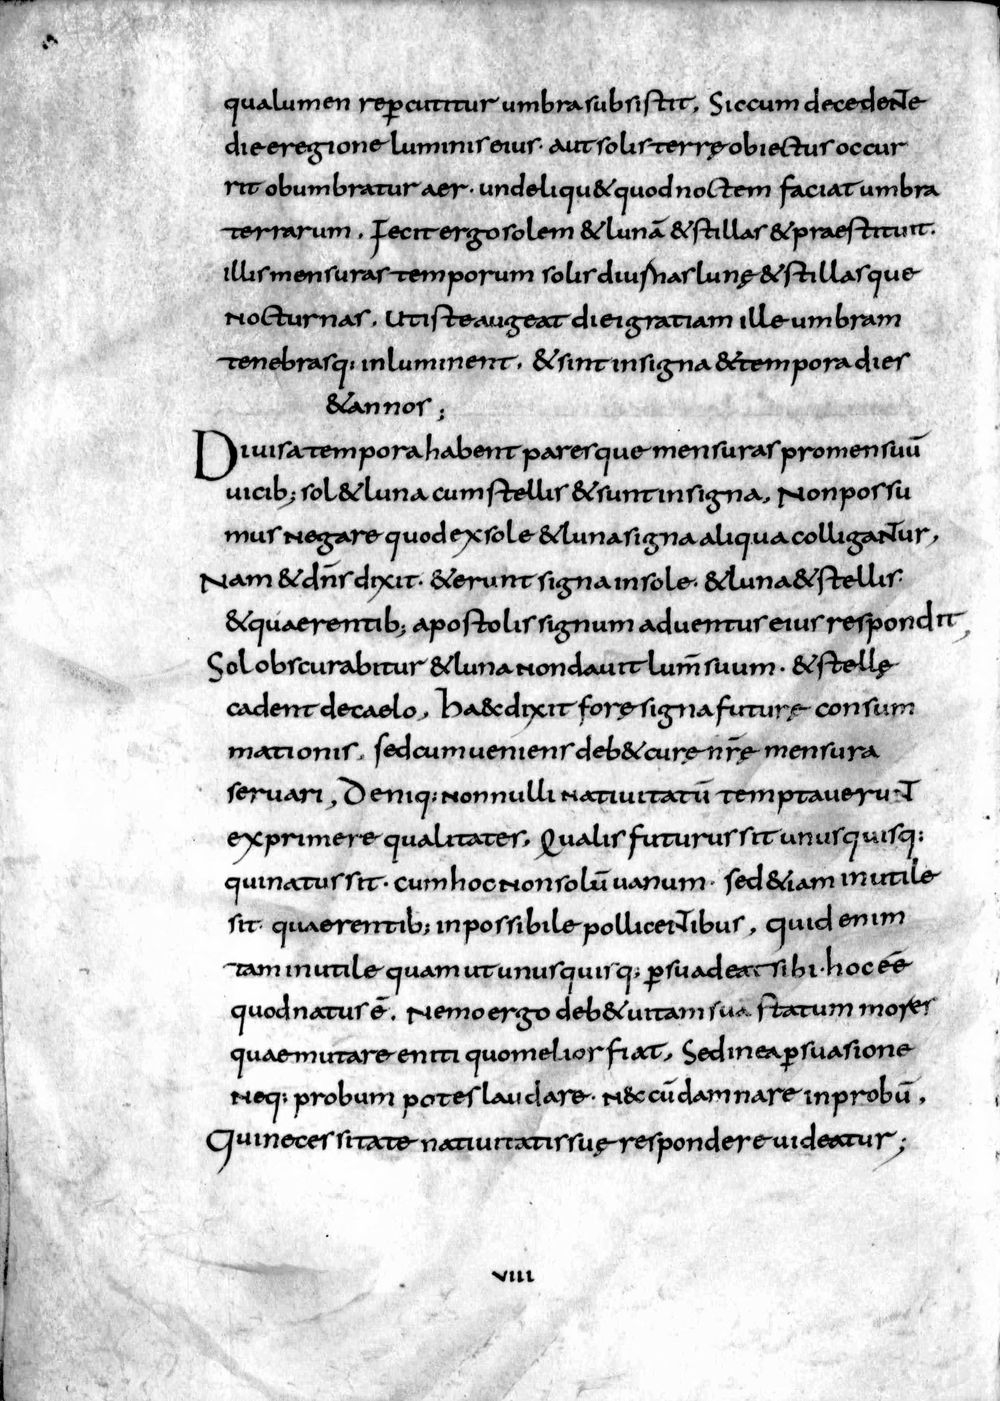 qua lumen repercutitur umbra subsistit, Sic cum decedente
die e regione luminis eius · aut solis terrę obiectus occur
rit obumbratur aer · unde liqu& quod noctem faciat umbra
terrarum, Fecit ergo solem & lunā & stillas & praestituit ·
illis mensuras temporum solis diurnas lunę & stillasque
nocturnas, Ut iste augeat diei gratiam ille umbram
tenebrasq: inluminent, & sint in signa & tempora dies
& annos;
Divisa tempora habent paresque mensuras pro mensuū
vicib; sol & luna cum stellis & sunt in signa, Non possu
mus negare quod ex sole & luna signa aliqua colligantur,
Nam & dn̄s dixit · & erunt signa in sole · & luna & stellis ·
& quaerentib; apostolis signum adventus eius respondit,
Sol obscurabitur & luna non dauit lum̄ suum · & stellę
cadent de caelo, haec dixit forę signa futurę consum
mationis, sed cum veniens deb& curę nr̄ę mensura
servari, Deniq: nonnulli nativitatū temptaverunt
exprimere qualitates, Qualis futurus sit unusquisq:
qui natus sit · cum hoc non solū vanum · sed &iam inutile
sit · quaerentib; inpossibile pollicentibus, quid enim
tam inutile quam ut unusquisq: p̱suadeat sibi · hoc eē
quod natus ē, Nemo ergo deb& vitam sua statum mores
quae mutare eniti quo melior fiat, Sed in ea p̱suasione
neq: probum potes laudare · n&cū damnare inprobū,
Qui necessitate nativitatis suę respondere videatur;
VIII